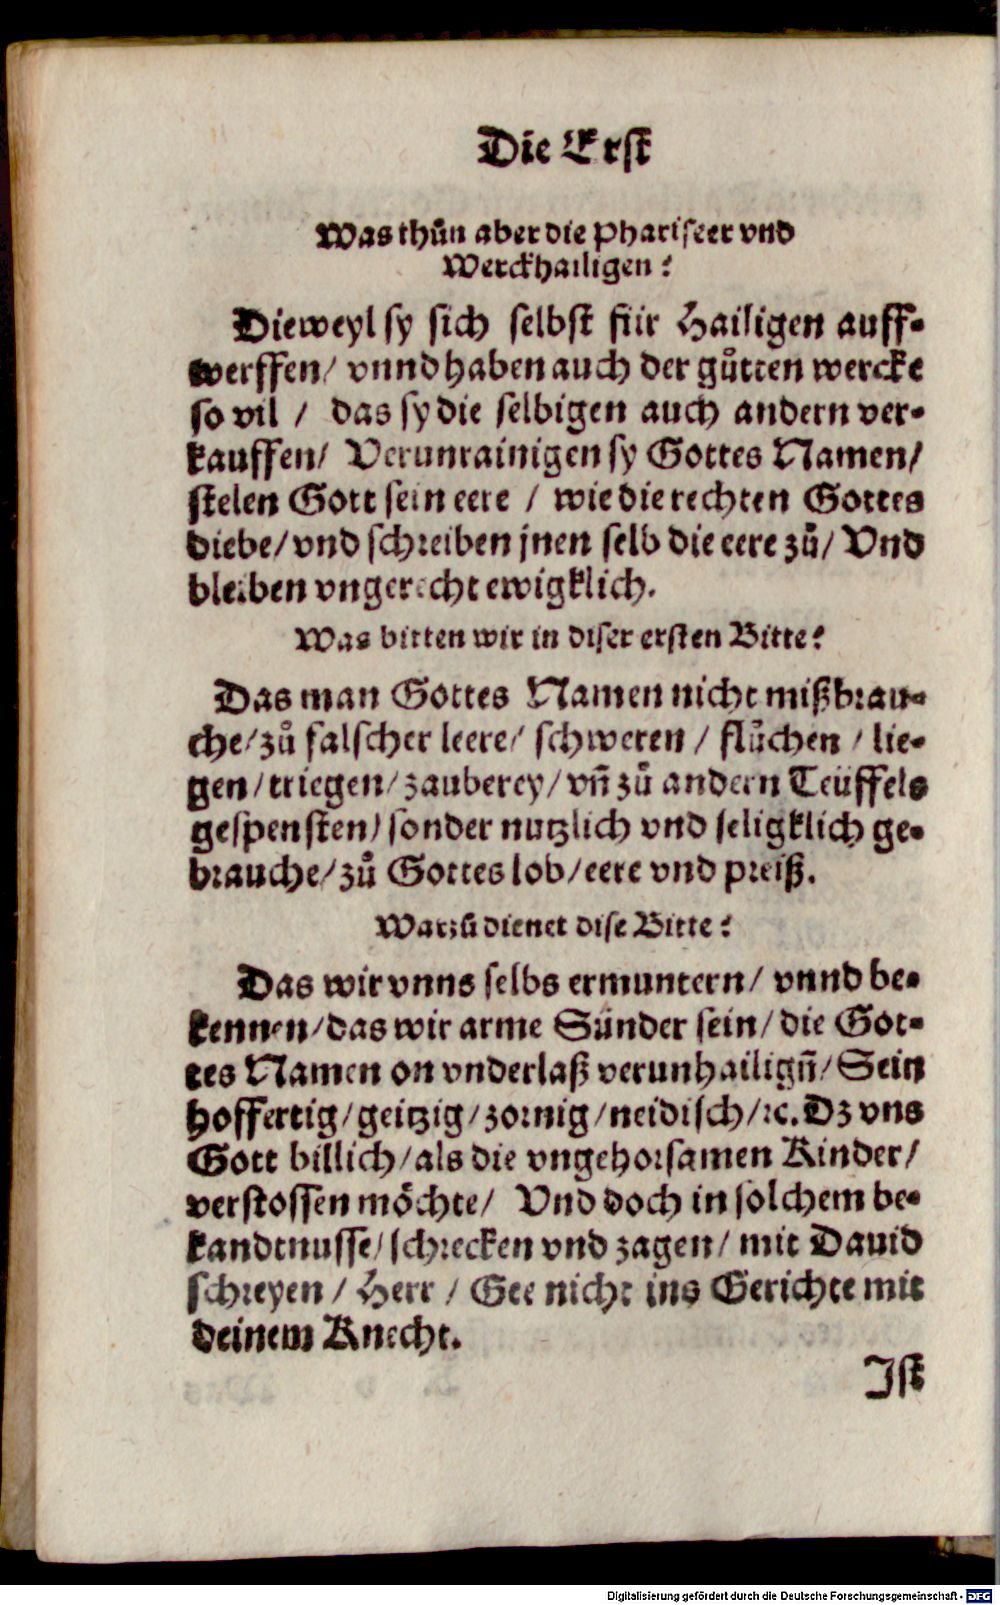 Die Erst
Was thůn aber die Phariseer vnd
Werckhailigen?
Dieweyl sy sich selbst für Hailigen auff-
werffen/ vnnd haben auch der gůtten wercke
so vil / das sy die selbigen auch andern ver-
kauffen/ Verunrainigen sy Gottes Namen/
stelen Gott sein eere / wie die rechten Gottes
diebe/ vnd schreiben jnen selb die eere zů/ Vnd
bleiben vngerecht ewigklich.
Was bitten wir in diser ersten Bitte?
Das man Gottes Namen nicht mißbrau-
che/ zů falscher leere/ schweren / flůchen / lie-
gen/ triegen/ zauberey/ vñ zů andern Teüffels
gespensten/ sonder nutzlich vnd seligklich ge-
brauche/ zů Gottes lob/ eere vnd preiß.
Warzů dienet dise Bitte?
Das wir vnns selbs ermuntern/ vnnd be-
kennen/ das wir arme Sünder sein/ die Got-
tes Namen on vnderlaß verunhailigñ/ Sein
hoffertig/ geitzig/ zornig/ neidisch/ ꝛc. Dz vns
Gott billich/ als die vngehorsamen Kinder/
verstossen möchte/ Vnd doch in solchem be-
kandtnusse/ schrecken vnd zagen/ mit Dauid
schreyen / Herr / Gee nicht ins Gerichte mit
deinem Knecht.
Ist
Digitalisierung gefördert durch die Deutsche Forschungsgemeinschaft - DFG